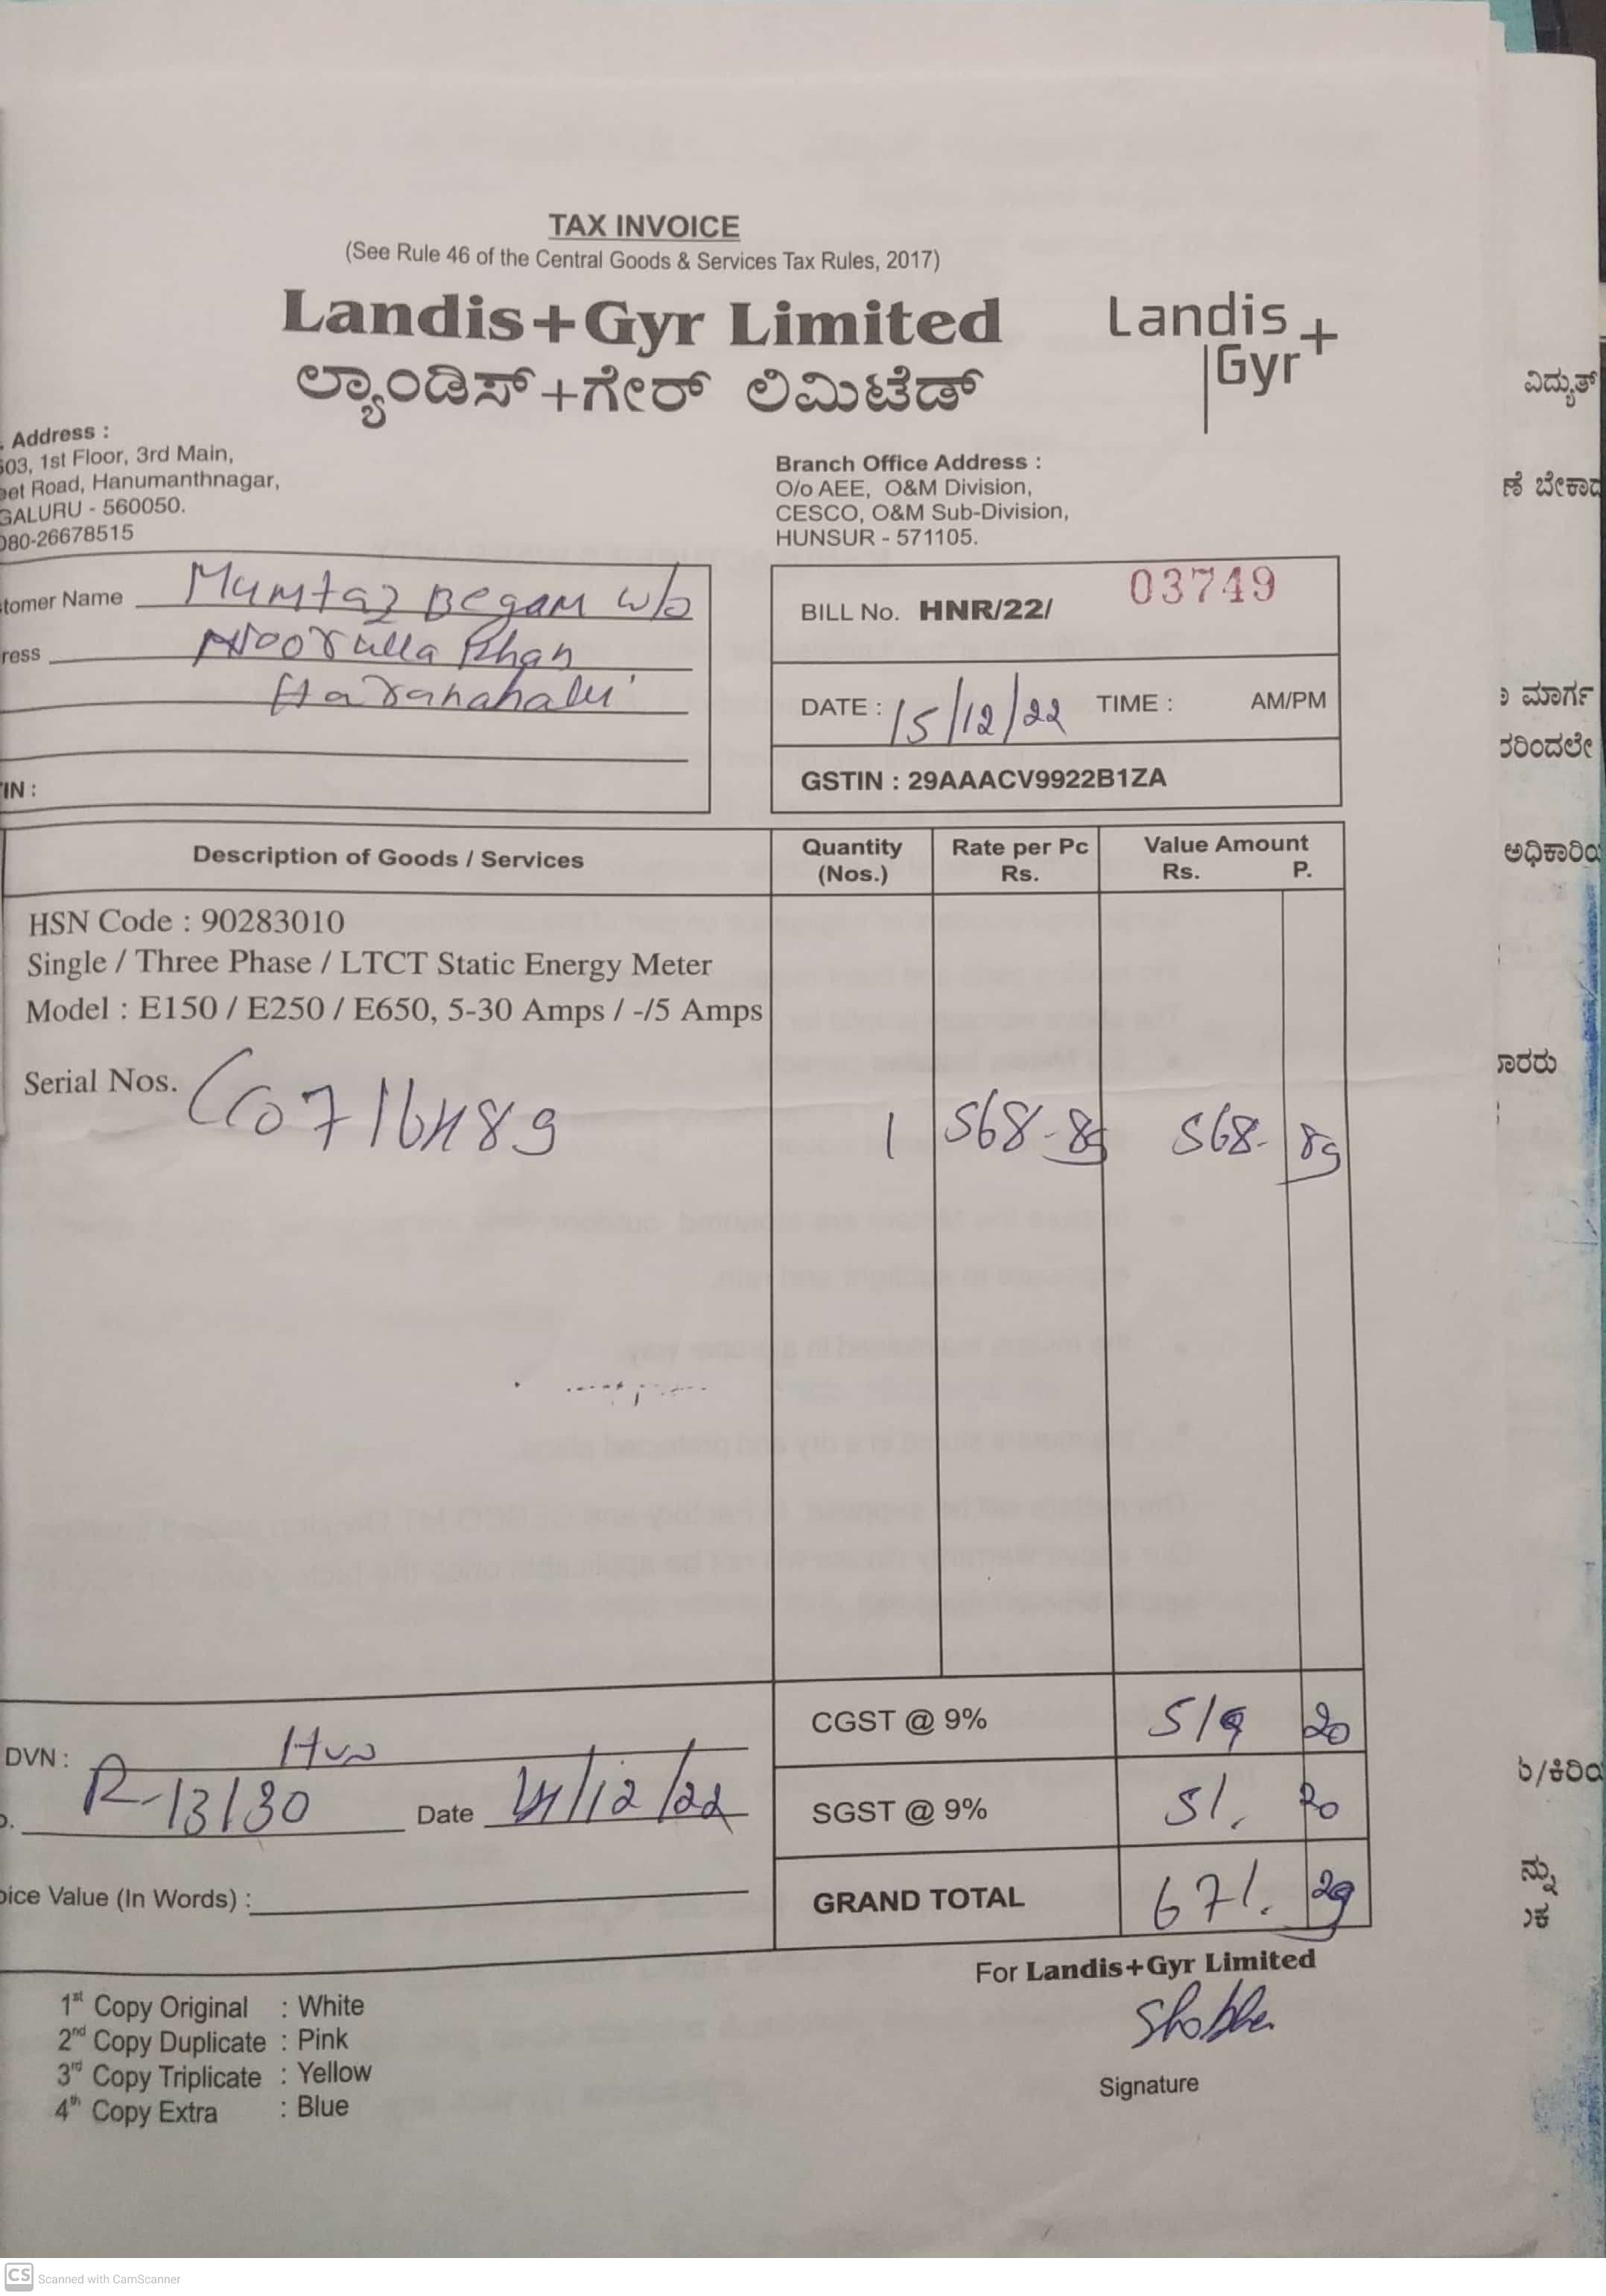 TAX INVOICE
(See Rule 46 of the Central Goods & Services Tax Rules, 2017)
Landis+Gyr Limited
ಲ್ಯಾಂಡಿಸ್+ಗೇರ್ ಲಿಮಿಟೆಡ್
Landis
Gyr+
. Address :
503, 1st Floor, 3rd Main,
eet Road, Hanumanthnagar,
GALURU - 560050.
080-26678515
Branch Office Address :
O/o AEE, O&M Division,
CESCO, O&M Sub-Division,
HUNSUR - 571105.
tomer Name Mumtaz Begam w/o
ress Noorulla Khan
Haranahalli
IN :
BILL No. HNR/22/ 03749
DATE : 15/12/22 TIME : AM/PM
GSTIN : 29AAACV9922B1ZA
Description of Goods / Services Quantity (Nos.) Rate per Pc Rs. Value Amount Rs. P.
HSN Code : 90283010
Single / Three Phase / LTCT Static Energy Meter
Model : E150 / E250 / E650, 5-30 Amps / -/5 Amps
Serial Nos. 1 568-89 568- 89
CGST @ 9% 51 20
SGST @ 9% 51. 20
GRAND TOTAL 671. 29
DVN :
R-13130 Date /12/22
oice Value (In Words) :
For Landis+Gyr Limited
Shobha
Signature
1st Copy Original : White
2nd Copy Duplicate : Pink
3rd Copy Triplicate : Yellow
4th Copy Extra : Blue
ವಿದ್ಯುತ್
ಣೆ ಬೇಕಾದ
ಮಾರ್ಗ
ರರಿಂದಲೇ
ಅಧಿಕಾರಿಯ
ಾರರು
ಕಿರಿಯ
ನ್ನು
CS Scanned with CamScanner